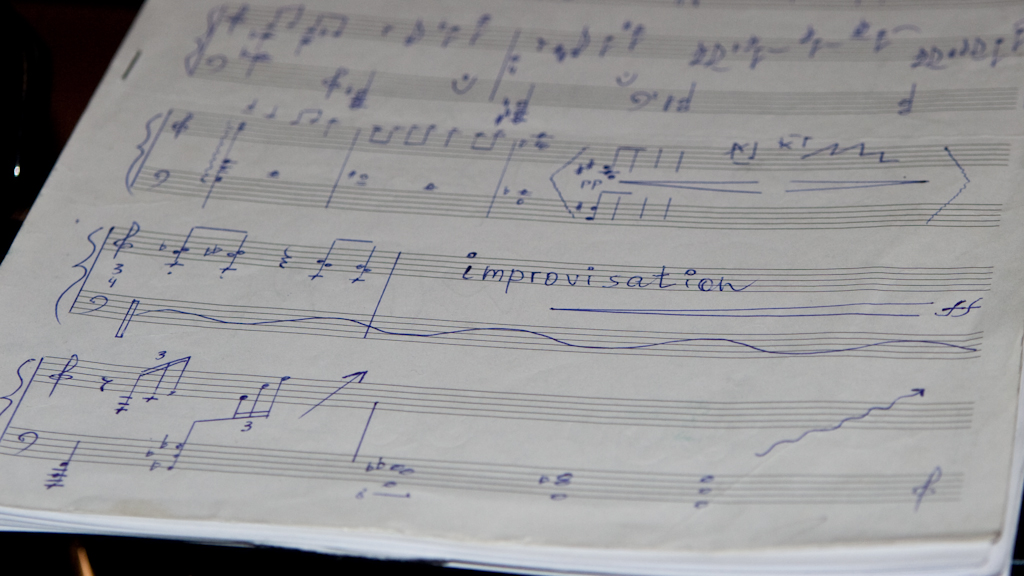 pp
3
4
improvisation
ff
3
3